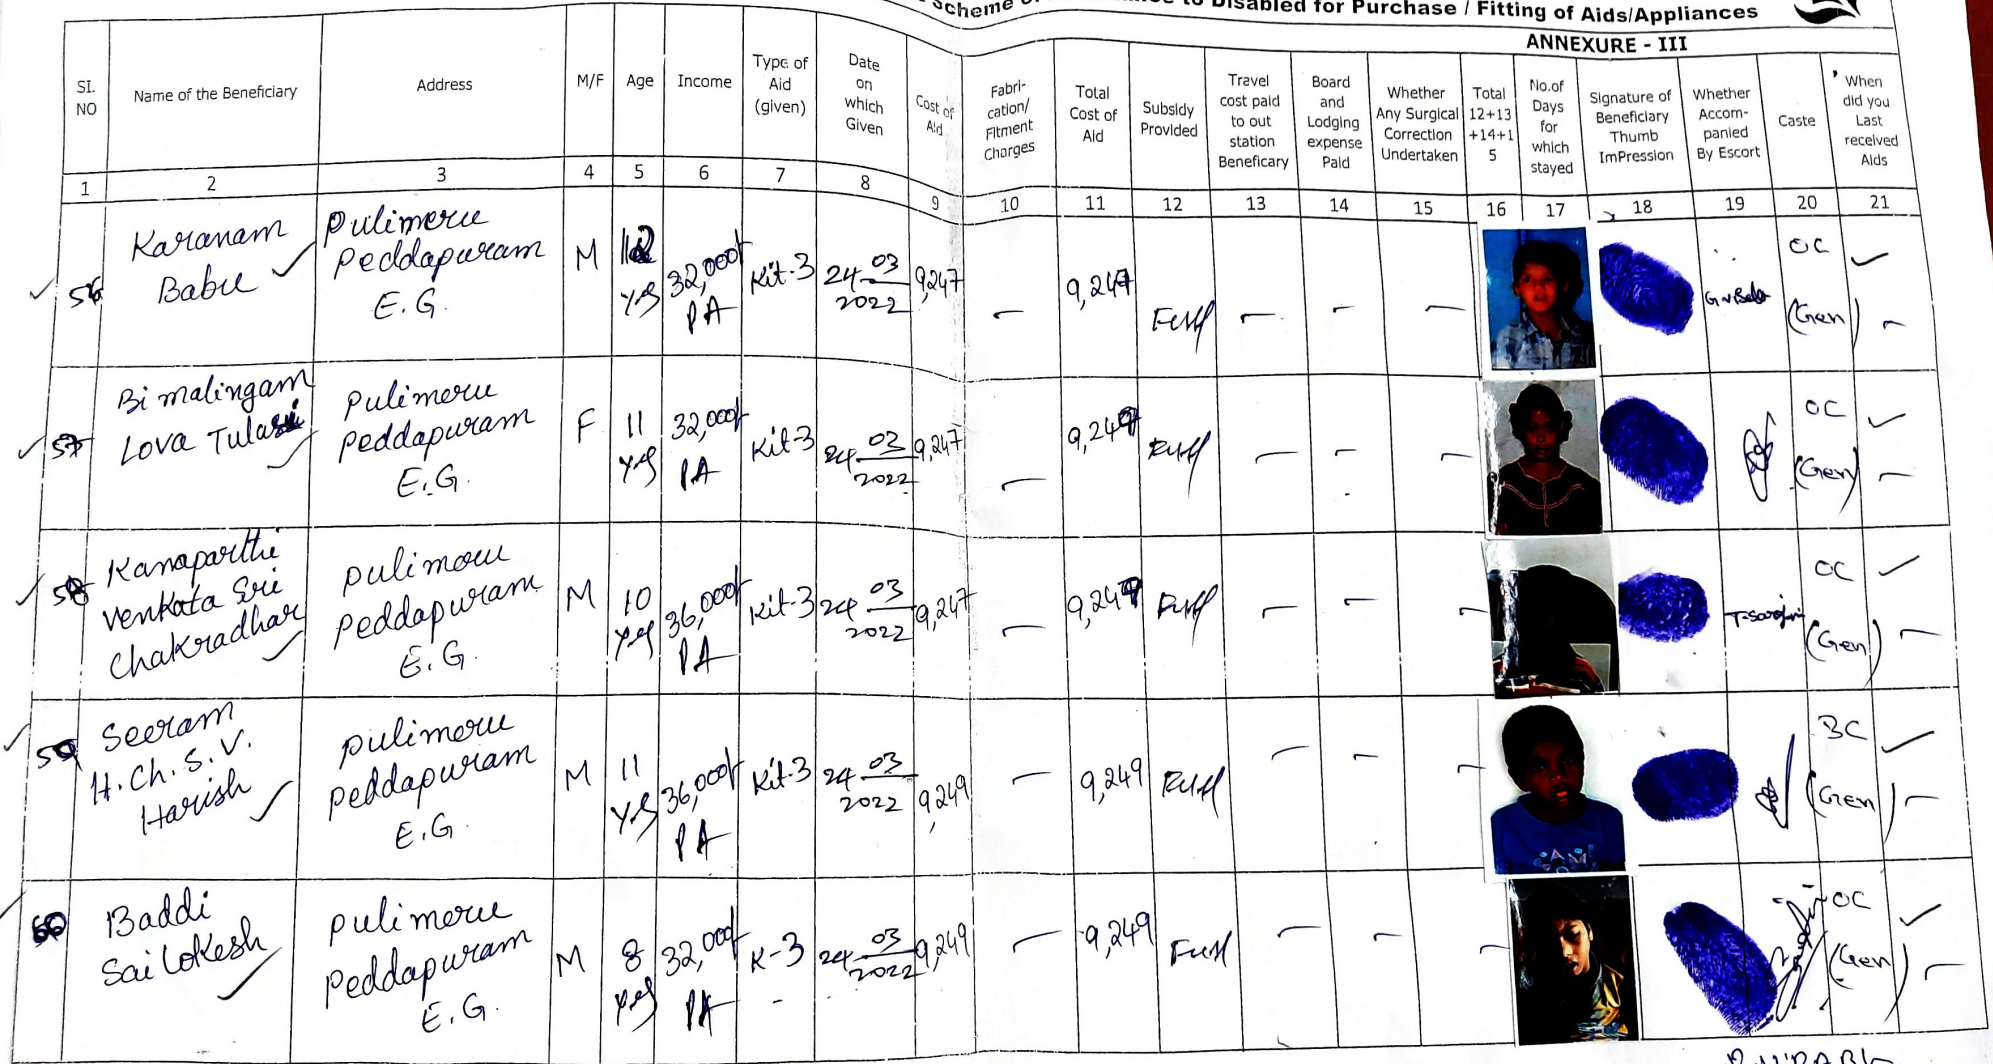 Disabled for Purchase / Fitting of Aids/Appliances
ANNEXURE - III
SI. NO
Name of the Beneficiary
Address
M/F
Age
Income
Type of Aid (given)
Date on which Given
Cost of Aid
Fabri-cation/ Fitment Charges
Total Cost of Aid
Subsidy Provided
Travel cost paid to out station Beneficary
Board and Lodging expense Paid
Whether Any Surgical Correction Undertaken
Total 12+13 +14+1 5
No.of Days for which stayed
Signature of Beneficiary Thumb ImPression
Whether Accom-panied By Escort
Caste
When did you Last received Aids
1 2 3 4 5 6 7 8 9 10 11 12 13 14 15 16 17 18 19 20 21
56 Karanam Babu
Pulimeru Peddapuram E.G.
M 12 yrs 32,000/- PA Kit-3 24 03 2022 9,247 – 9,247 Full – – – OC (Gen) –
57 Bimalingam Lova Tulasi
Pulimeru Peddapuram E.G.
F 11 yrs 32,000/- PA Kit-3 24 03 2022 9,247 – 9,247 Full – – – OC (Gen) –
58 Kanaparthi Venkata Sri Chakradhar
Pulimeru Peddapuram E.G.
M 10 yrs 36,000/- PA Kit-3 24 03 2022 9,247 – 9,247 Full – – – OC (Gen) –
59 Seeram H.Ch.S.V. Harish
Pulimeru Peddapuram E.G.
M 11 yrs 36,000/- PA Kit-3 24 03 2022 9,249 – 9,249 Full – – – BC (Gen) –
60 Baddi Sai Lokesh
Pulimeru Peddapuram E.G.
M 8 yrs 32,000/- PA K-3 24 03 2022 9,249 – 9,249 Full – – – OC (Gen) –